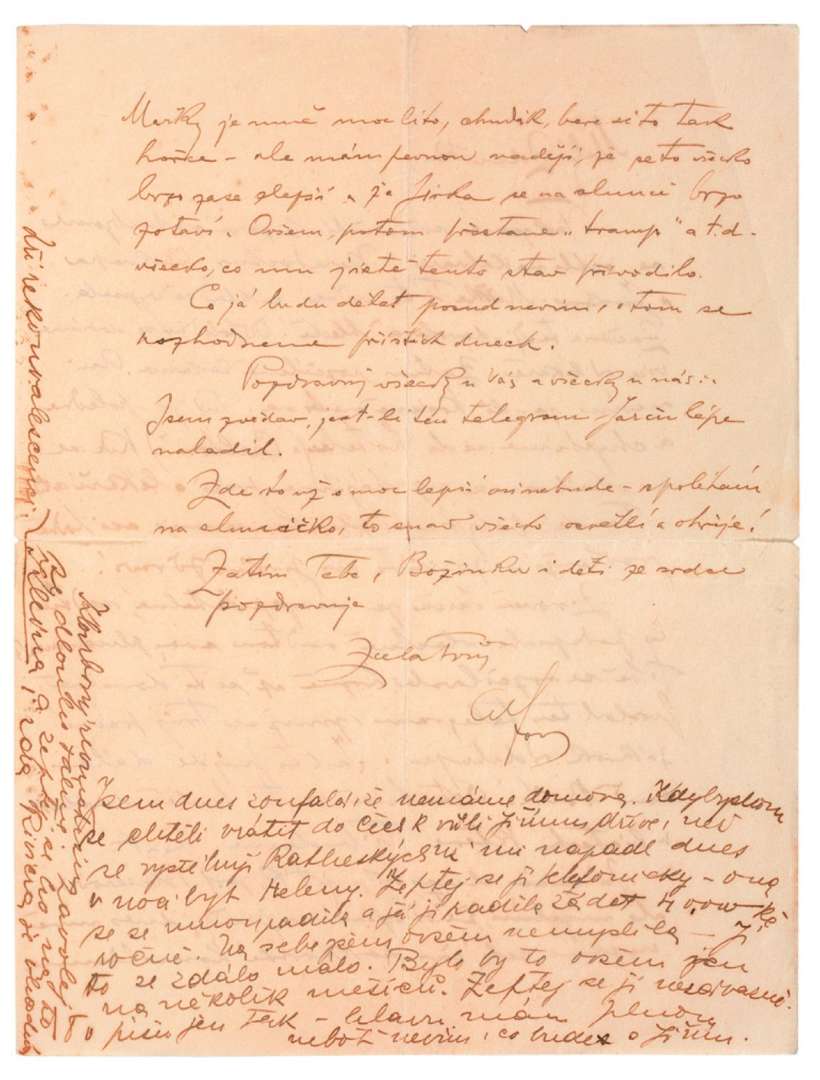 je mně moc líto, chudák, bere si to tak
hořce – ale mám pevnou naději, že se to všecko
brzo zase zlepší a že Jirka se na slunci brzo
zotaví. Ovšem, potom přestane „tramp" a t.d.
všecko, co mu jistě tento stav přivodilo.
Co já budu dělat posud nevím, o tom se
rozhodneme příštích dnech.
Pozdravuj všecky u Vás a všecky u nás.
Jsem zvědav, jest-li ten telegram lépe
naladil.
Zde to už o moc lepší asi nebude – spoléhám
na sluníčko, to snad všecko osvětlí a ohřeje!
Zatím Tebe, Boženku i děti ze srdce
pozdravuje
zcela Tvůj
Jsem dnes zoufalá, že nemáme domova. Kdybychom
se chtěli vrátit do Čech k vůli Jiřímu dříve, než
se vystěhují mi napadl dnes
byt Heleny. Zeptej se jí telefonicky – ona
se se mnou radila a já jí radila žádat Kč
ročně. Na sebe jsem ovšem nemyslila – Jí
to se zdálo málo. Bylo by to ovšem jen
na několik měsíců. Zeptej se jí nezávazně.
píšu jen tak – hlavu mám plnou
neboť nevím, co bude s Jiřím.
při rekonvalescenci.
zavolej
zeptej se ho na to
i zda Riviera je vhodná